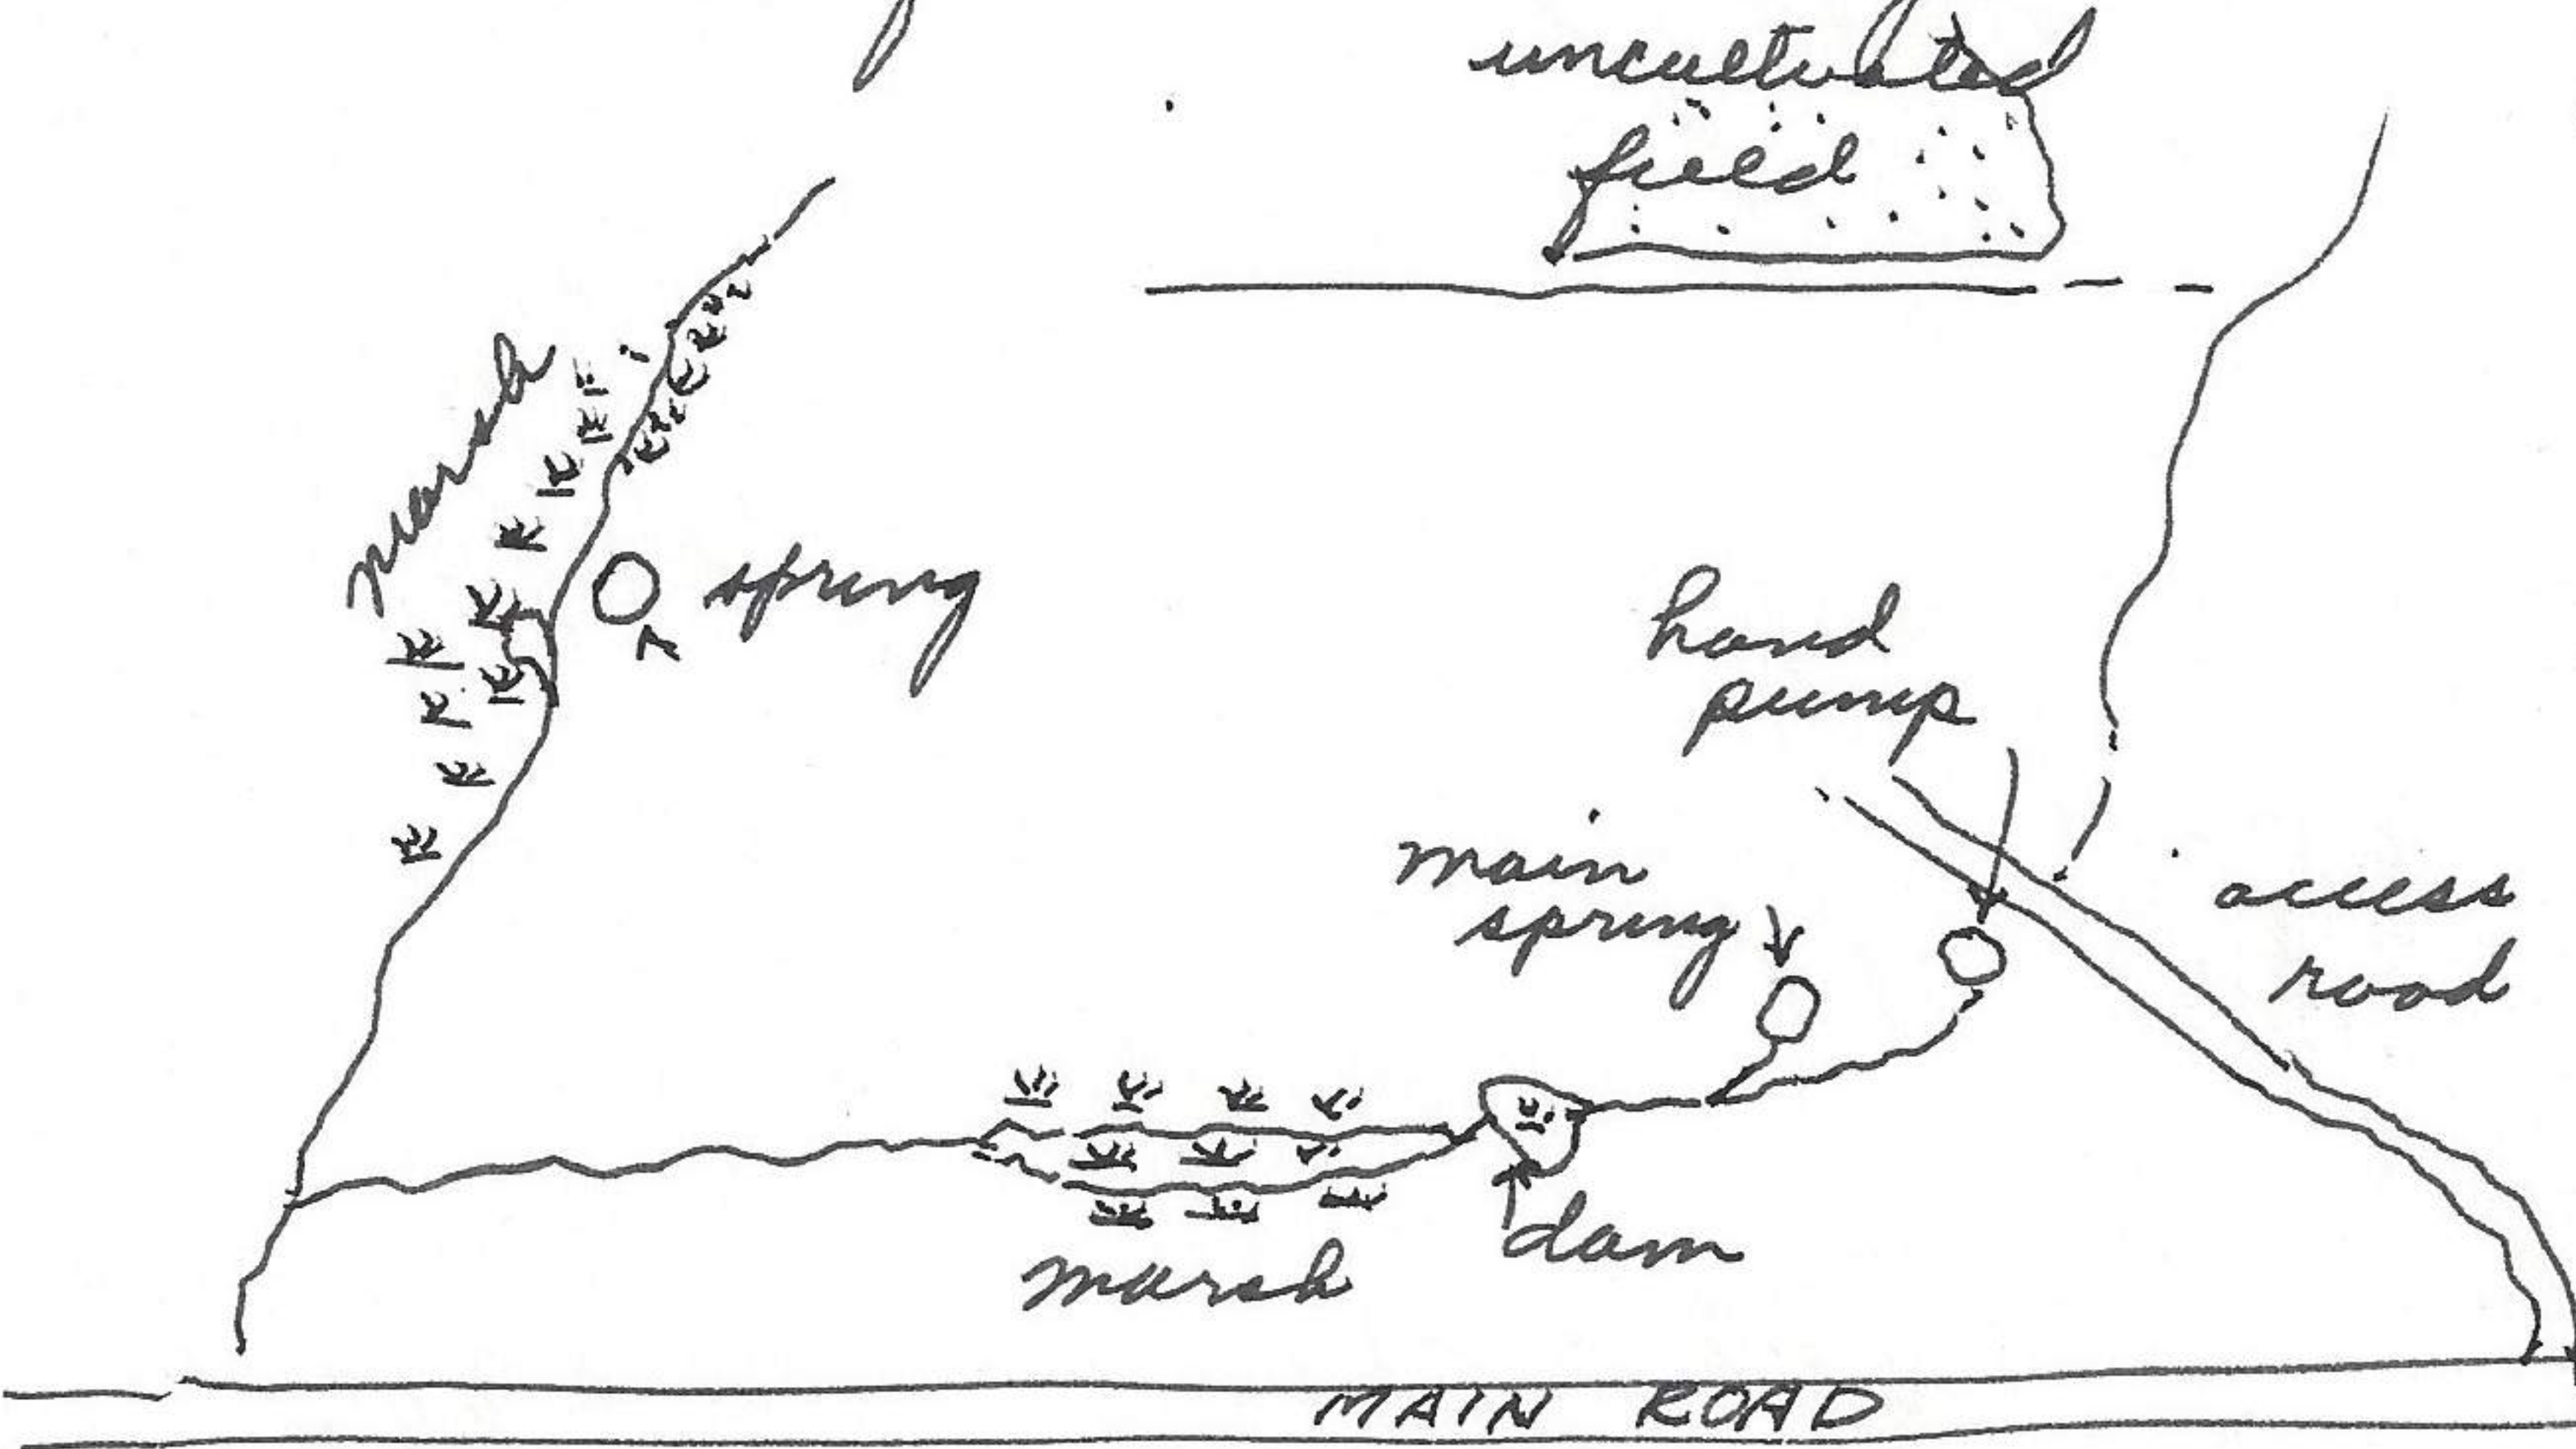 uncultivated
field
marsh
spring
hand
pump
main
spring
access
road
dam
marsh
MAIN ROAD